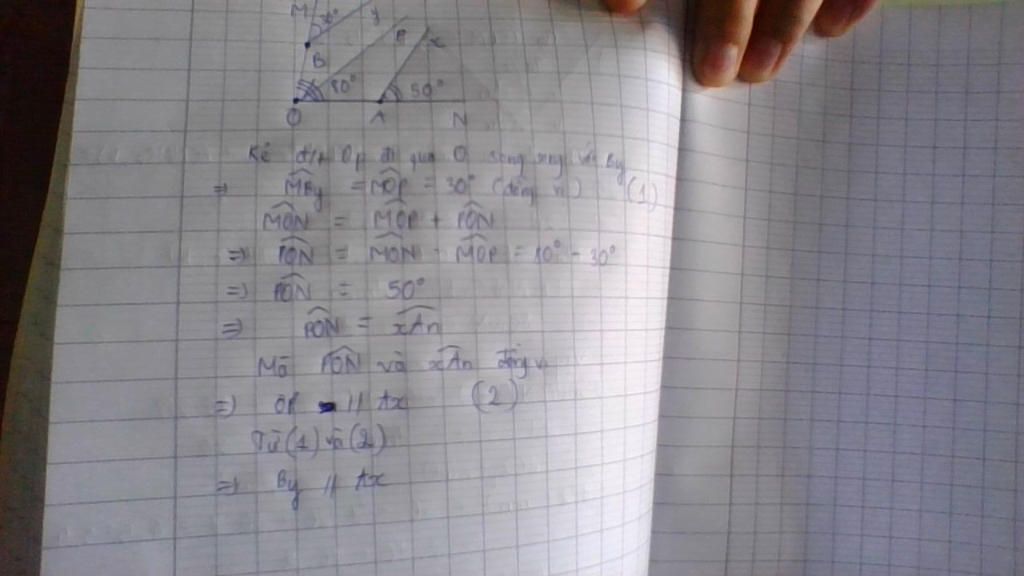 M 30° y
B P x
80° 50°
O A N
Kẻ đt Op đi qua O song song với By
=> M̂By = M̂OP = 30° (đồng vị) (1)
M̂ON = M̂OP + P̂ON
=> P̂ON = M̂ON - M̂OP = 80° - 30°
=> P̂ON = 50°
=> P̂ON = x̂An
Mà P̂ON và x̂An đồng vị
=> OP // Ax (2)
Từ (1) và (2)
=> By // Ax